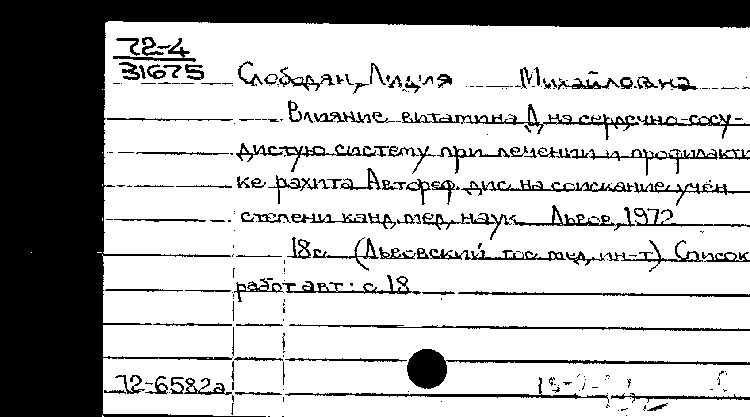 72-4
31675
Слободян, Лидия Михайловна
Влияние витамина Д на сердечно-сосу-
дистую систему при лечении и профилакти
ке рахита Автореф. дис. на соискание учен
степени канд. мед. наук Львов, 1972
18с. (Львовский гос. мед. ин-т) Список
работ авт: с. 18
72-6582а